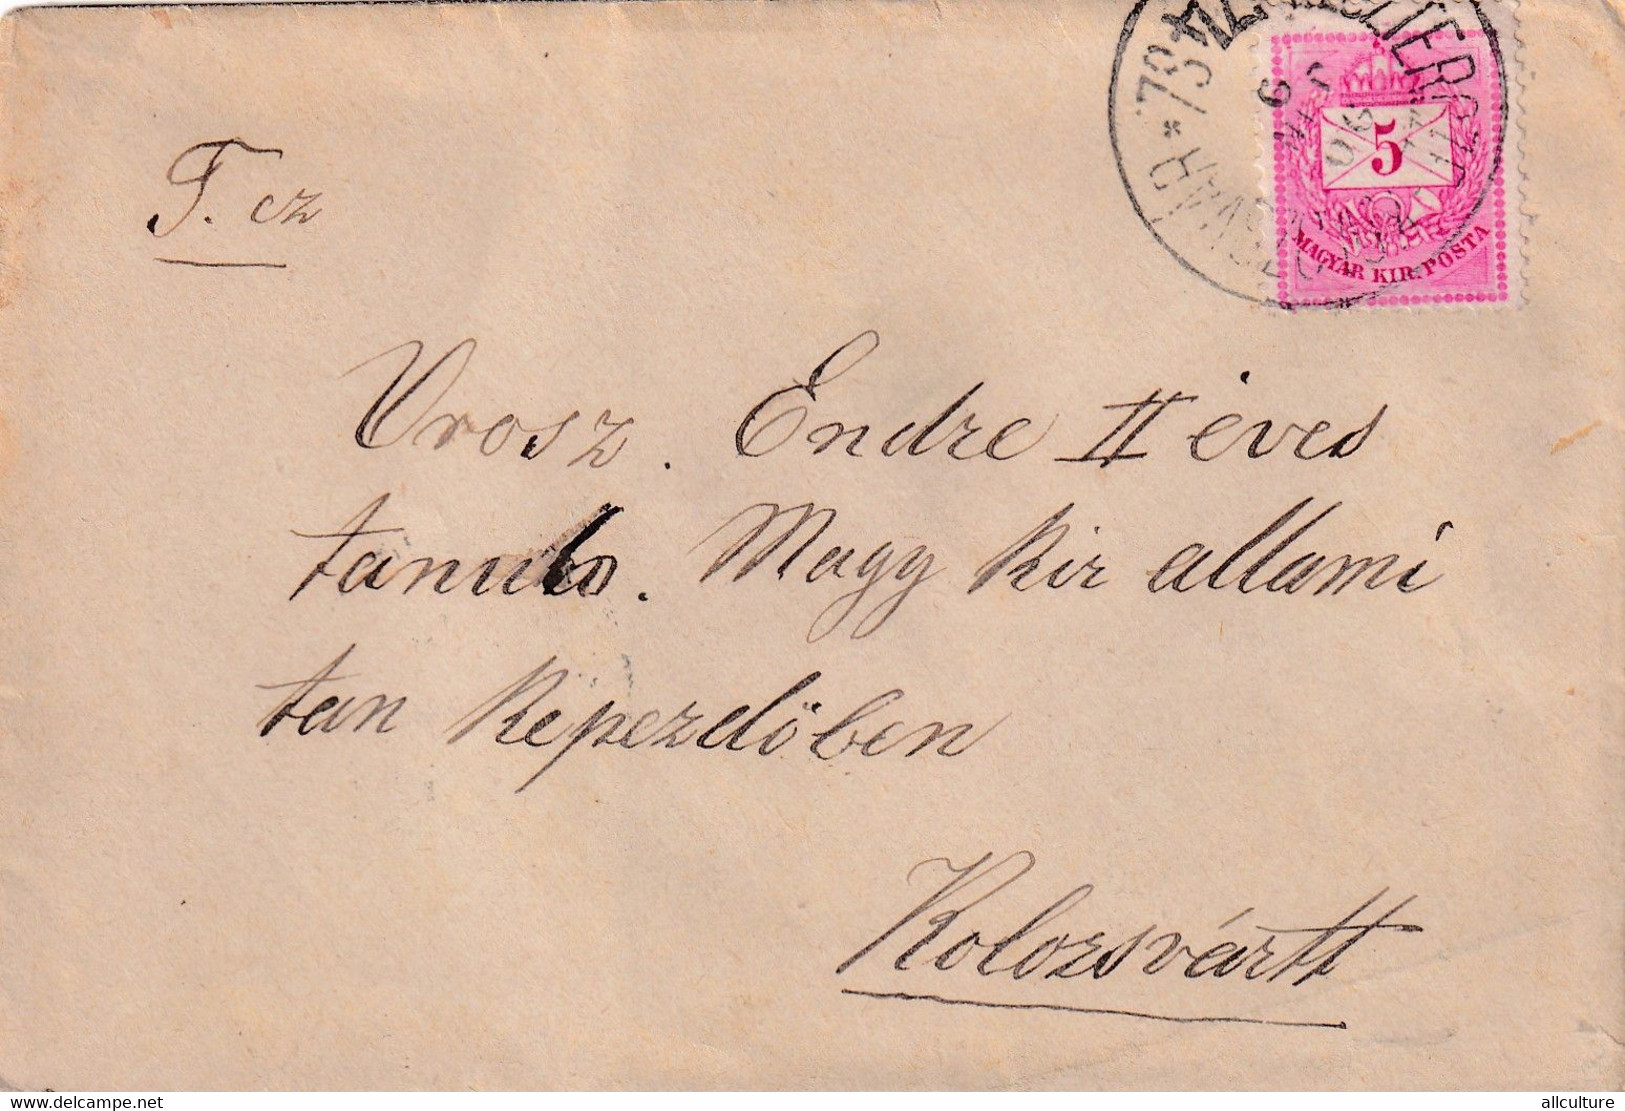 T. cz
5
MAGYAR KIR. POSTA
Orosz. Endre II éves
tanuló. Magy Kir allami
tan Kepezdöben
Kolozsvártt
www.delcampe.net
allculture